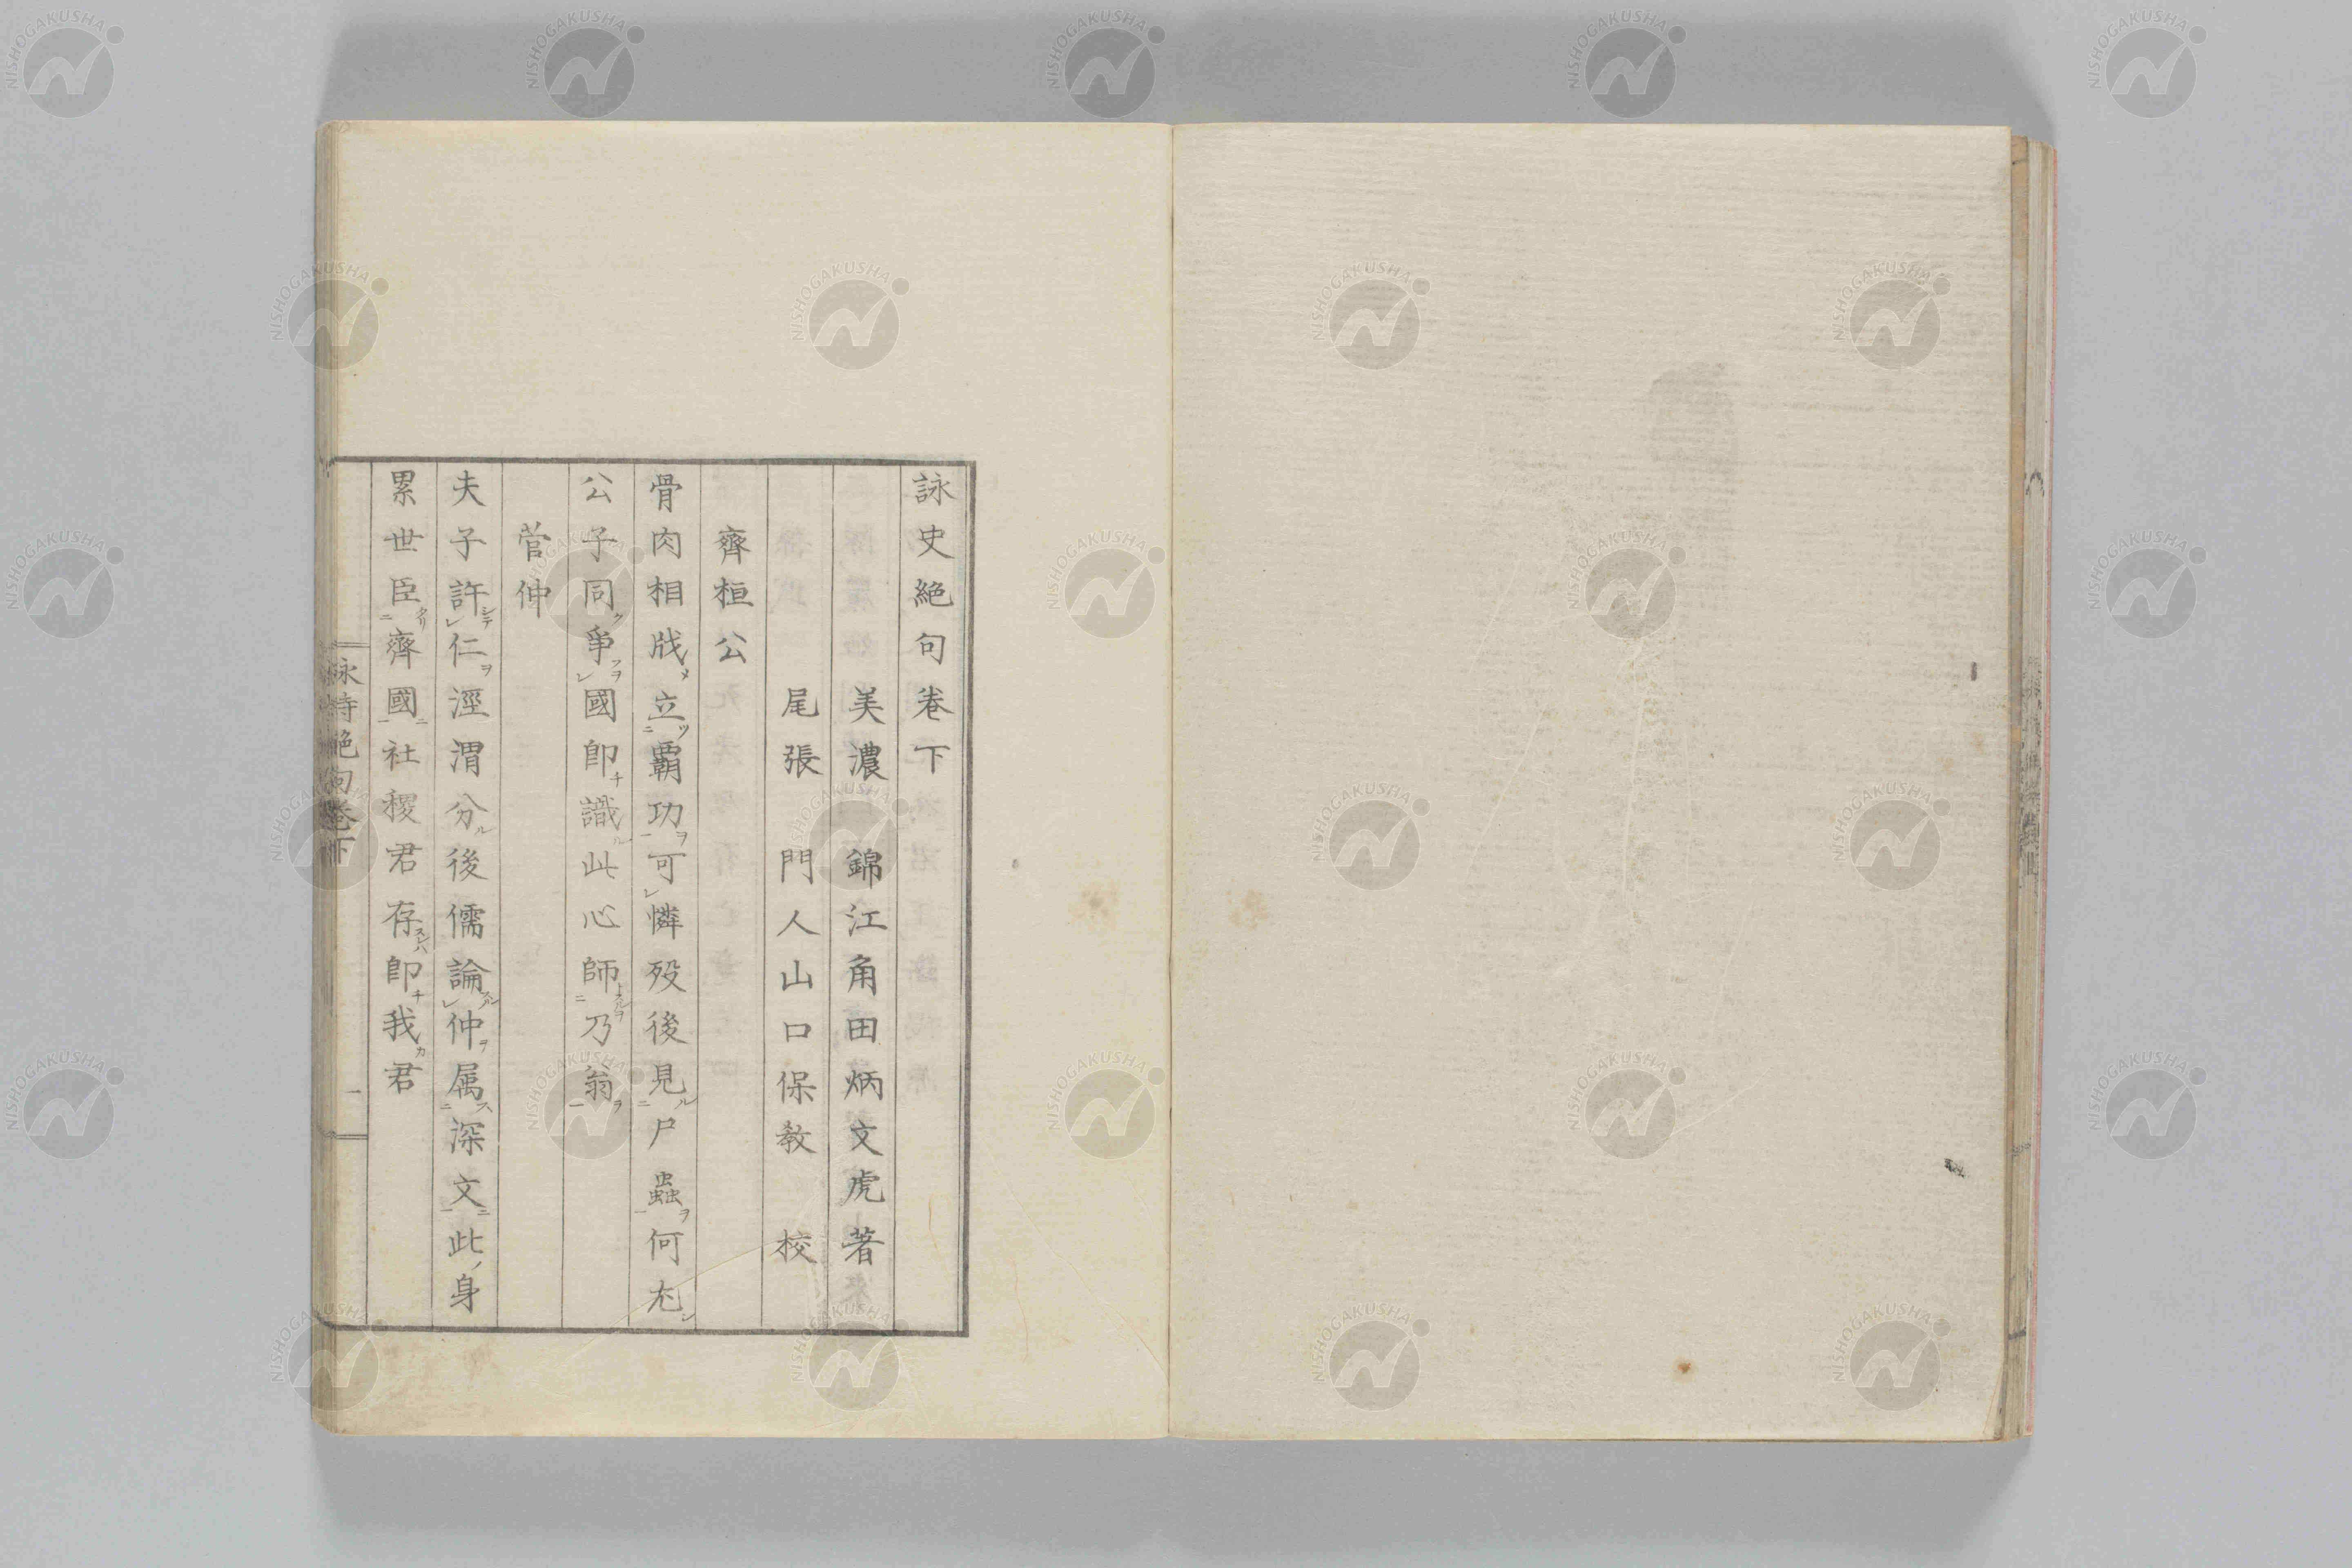 詠史絶句卷下
美濃 錦江角田炳文虎著
尾張 門人山口保教 校
齊桓公
骨肉相戕立覇功可憐歿後見尸蟲何尤
公子同爭國卽識此心師乃翁
菅仲
夫子許仁涇渭分後儒論仲属深文此身
累世臣齊國社稷君存卽我君
詠詩絶句卷下
一
NISHOGAKUSHA